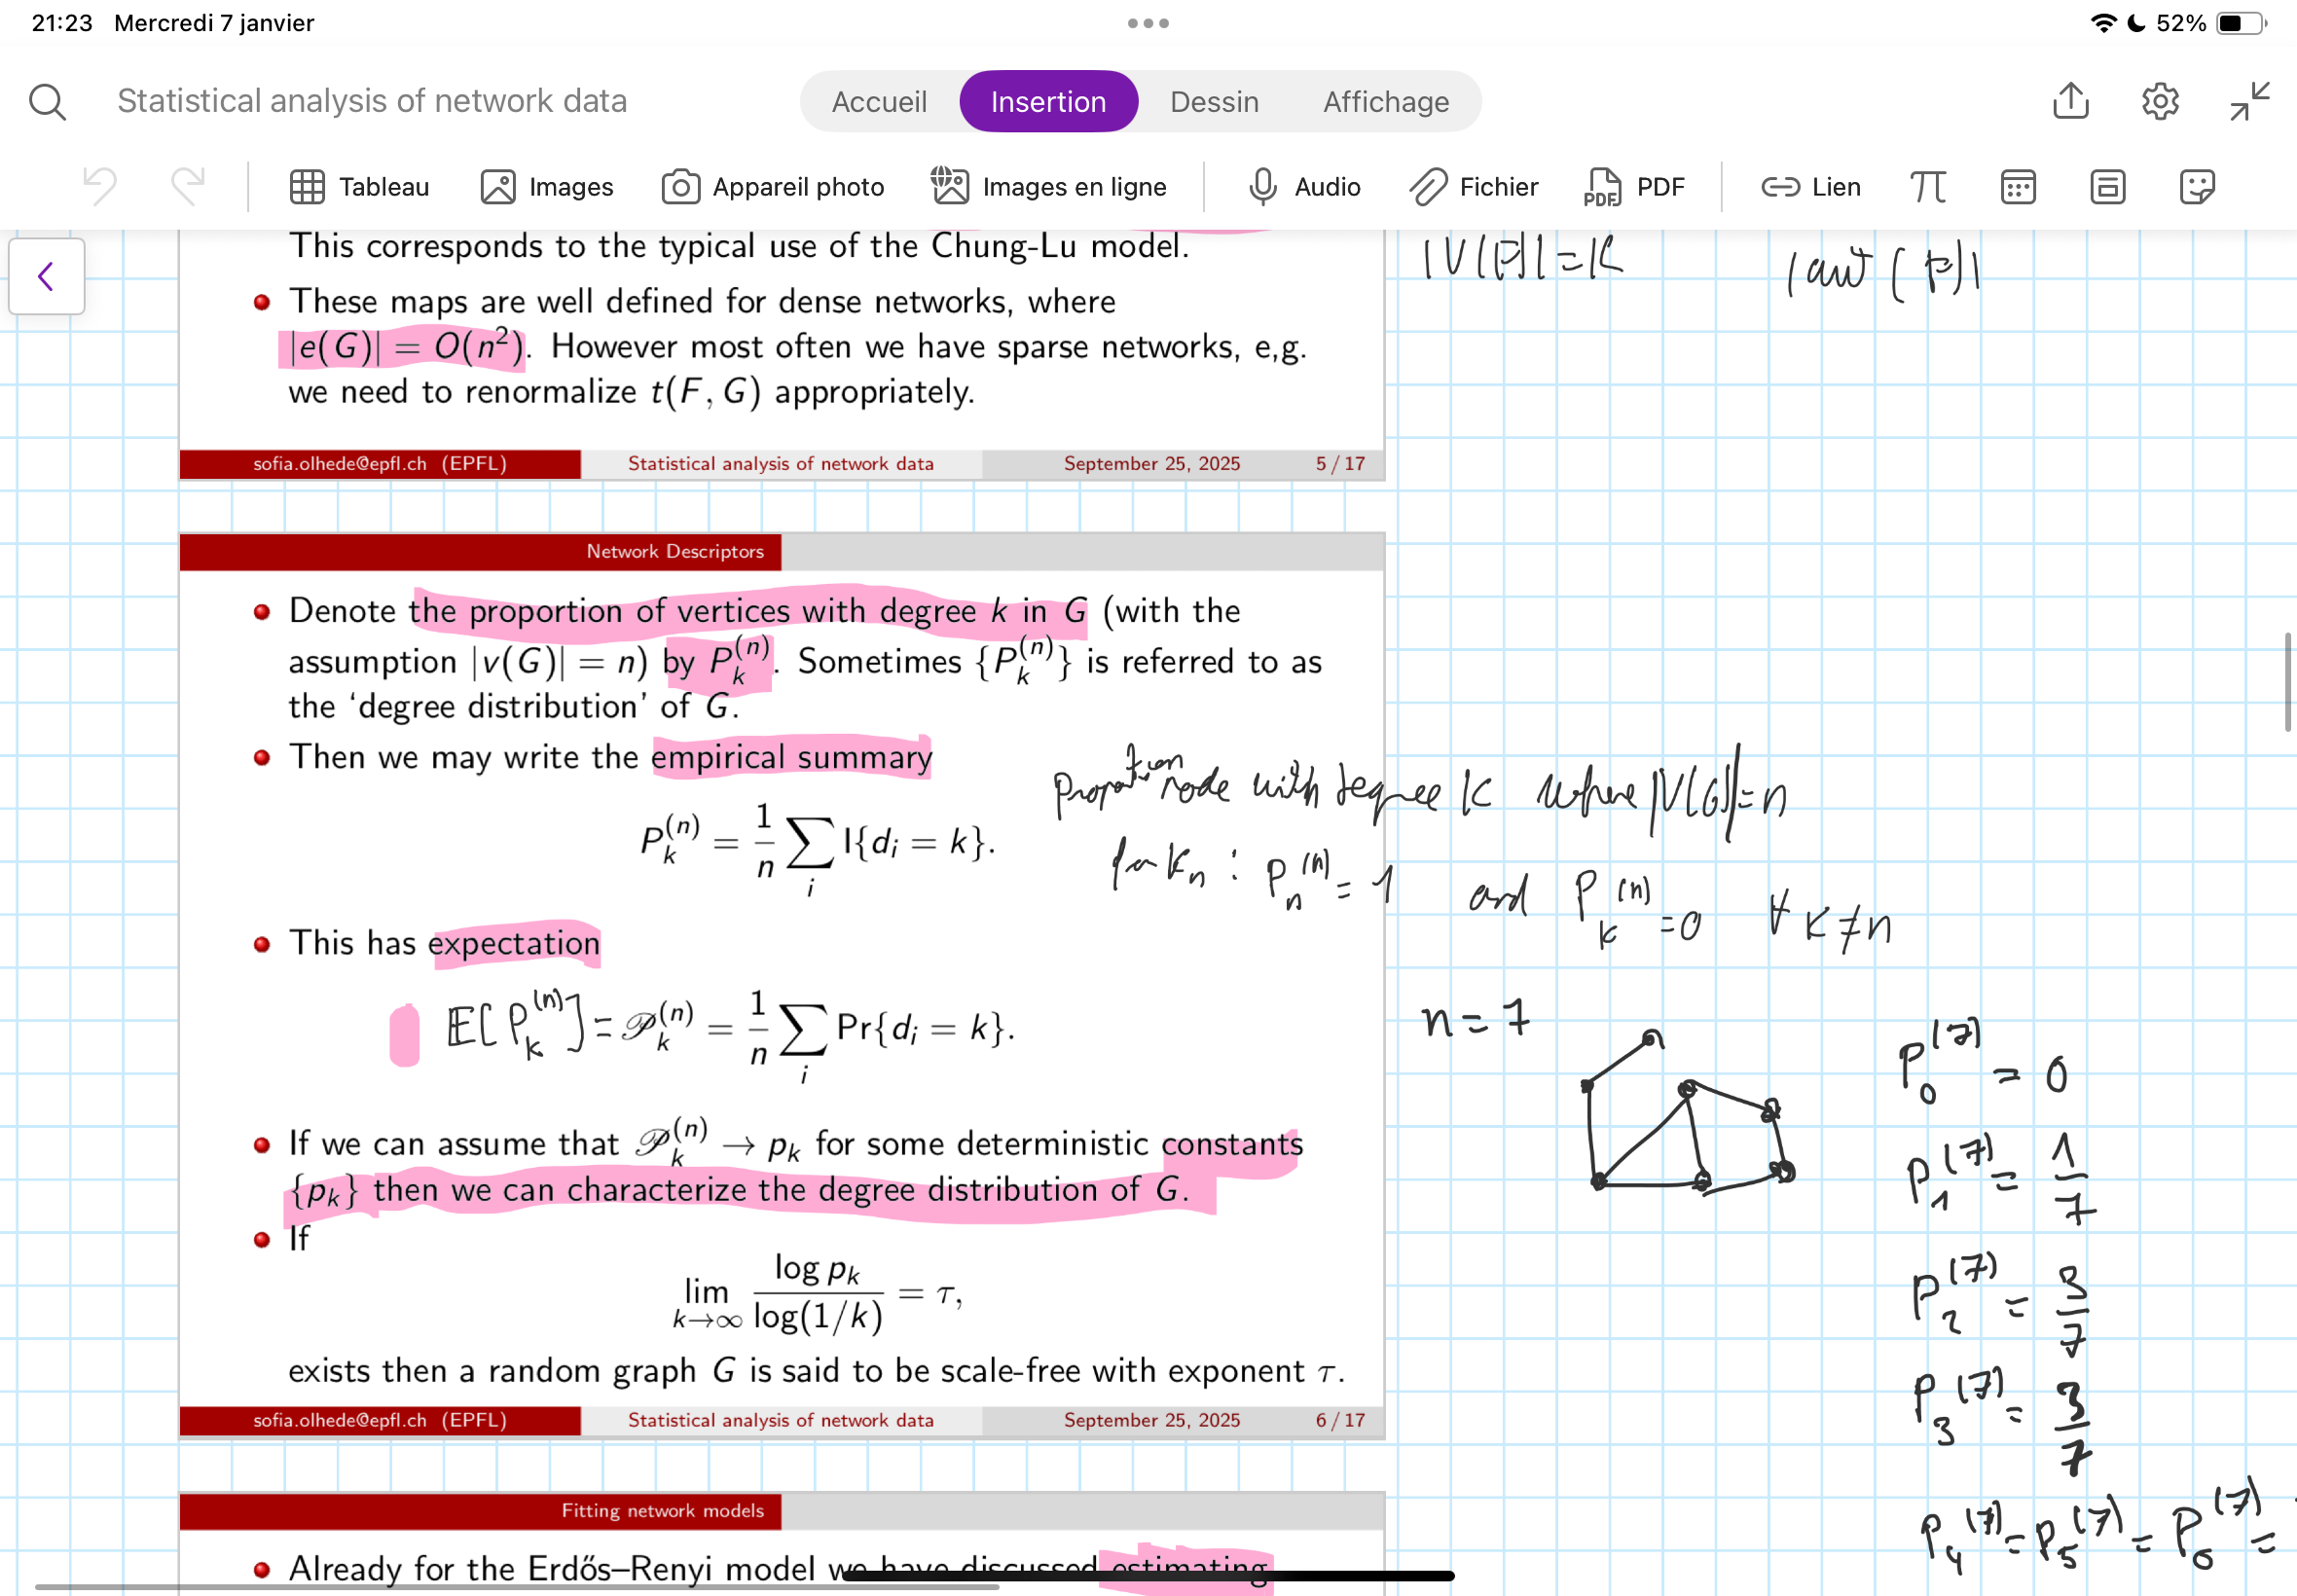 21:23 Mercredi 7 janvier
52%
Statistical analysis of network data
Accueil Insertion Dessin Affichage
Tableau Images Appareil photo Images en ligne Audio Fichier PDF Lien
This corresponds to the typical use of the Chung-Lu model.
|V(F)|=k |aut(F)|
These maps are well defined for dense networks, where
|e(G)| = O(n²). However most often we have sparse networks, e,g.
we need to renormalize t(F, G) appropriately.
sofia.olhede@epfl.ch (EPFL) Statistical analysis of network data September 25, 2025 5 / 17
Network Descriptors
Denote the proportion of vertices with degree k in G (with the
assumption |v(G)| = n) by P_k^(n). Sometimes {P_k^(n)} is referred to as
the ‘degree distribution’ of G.
Then we may write the empirical summary
Proportion node with degree k where |V(G)|=n
P_k^(n) = 1/n ∑_i I{d_i = k}.
for K_n : P_n^(n) = 1 and P_k^(n) = 0 ∀ k ≠ n
This has expectation
E[P_k^(n)] = 𝒫_k^(n) = 1/n ∑_i Pr{d_i = k}.
n = 7
P_0^(7) = 0
P_1^(7) = 1/7
P_2^(7) = 3/7
P_3^(7) = 3/7
P_4^(7) = P_5^(7) = P_6^(7) =
If we can assume that 𝒫_k^(n) → p_k for some deterministic constants
{p_k} then we can characterize the degree distribution of G.
If
lim_{k→∞} log p_k / log(1/k) = τ,
exists then a random graph G is said to be scale-free with exponent τ.
sofia.olhede@epfl.ch (EPFL) Statistical analysis of network data September 25, 2025 6 / 17
Fitting network models
Already for the Erdős–Renyi model we have discussed estimating